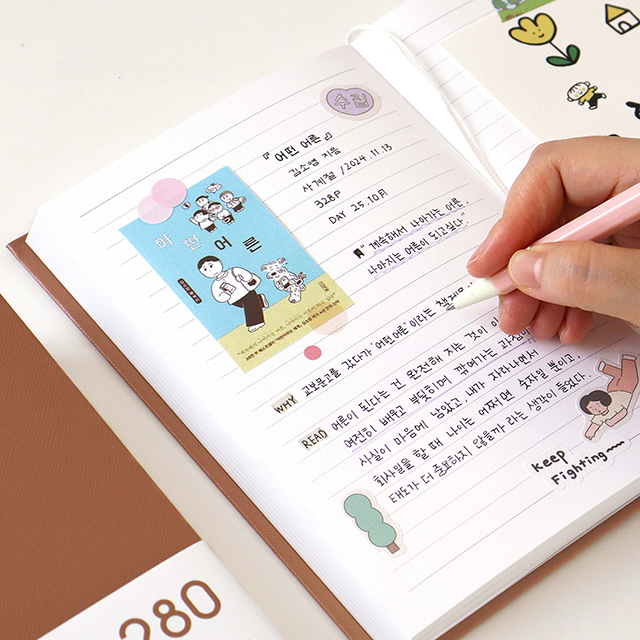 수집
『어떤 어른』
김소영 지음
사계절 / 2024. 11. 13
328P
DAY 25. 10월
" 계속해서 나아가는 어른,
나아지는 어른이 되고싶다"
어떤 어른
WHY 교보문고를 갔다가 '어떤어른'이라는 책제목
READ 어른이 된다는 건 완전해 지는 것이 아
여전히 배우고 부딪히며 깎여가는 과정이
사실이 마음에 남았고, 내가 자라나면서
회사일을 할 때 나이는 어쩌면 숫자일 뿐이고,
태도가 더 중요하지 않을까 라는 생각이 들었다.
keep
Fighting
280